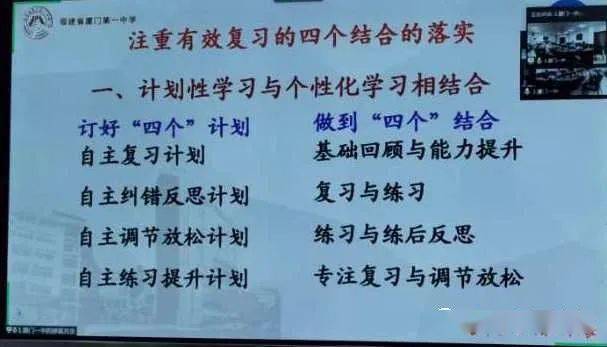 福建省厦门第一中学
注重有效复习的四个结合的落实
一、计划性学习与个性化学习相结合
订好“四个”计划
做到“四个”结合
自主复习计划
基础回顾与能力提升
自主纠错反思计划
复习与练习
自主调节放松计划
练习与练后反思
自主练习提升计划
专注复习与调节放松